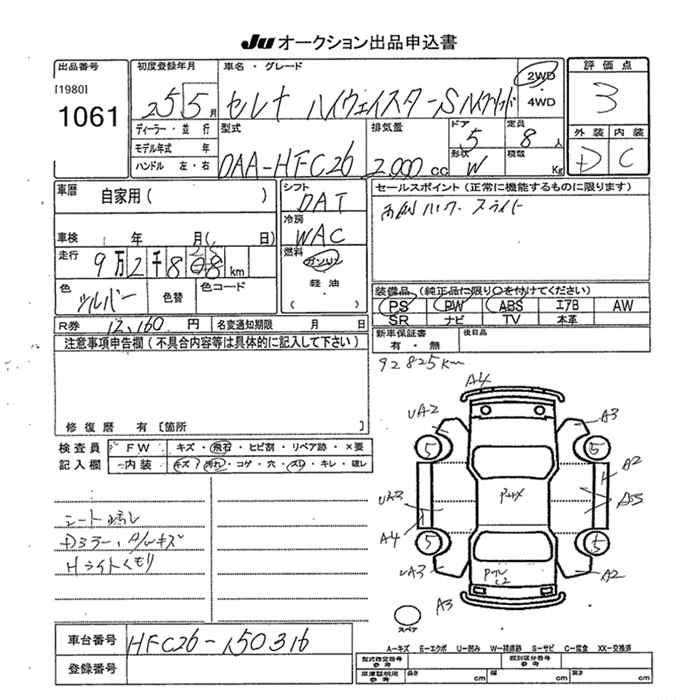 Ju オークション出品申込書
出品番号 初度登録年月 車名・グレード 2WD 評価点
[1980] 1061 25 5月 セレナ ハイウェイスターS ハイブリッド ・4WD 3
ディーラー・並行 型式 排気量 ドア 5 定員 8人 外装 内装
モデル年式 年 DAA-HFC26 2,000 cc 形状 W 積載 Kg D C
ハンドル 左・右
車歴 自家用( ) シフト DAT セールスポイント(正常に機能するものに限ります)
冷房 WAC 両側パワースライド
車検 年 月( 日)
走行 9万2千8 km 燃料 ガソリン
軽油
( )
装備品(純正品に限り○を付けてください)
色 シルバー 色替 色コード PS PW ABS エアB AW
SR ナビ TV 本革
R券 12,160 円 名変通知期限 月 日 新車保証書 有・無 後日品
注意事項申告欄(不具合内容等は具体的に記入して下さい)
92825km
修復歴 有[箇所 ]
検査員 FW キズ・飛石・ヒビ割・リペア跡・×要
記入欄 内装 キズ・汚れ・コゲ・穴・スレ・キレ・破レ
シート汚レ
Dミラー、A/Wキズ
Hライトくもり
A4
UA2 A3
5 5
A2
UA3 A5
A4
5 5
UA3 A2
A3
スペア
車台番号 HFC26-150316
登録番号
A−キズ E−エクボ U−凹み W−補修跡 S−サビ C−腐食 XX−交換済
型式指定番号 参考 類別区分番号 参考
車庫証明用 参考 長さ cm 幅 cm 高さ cm